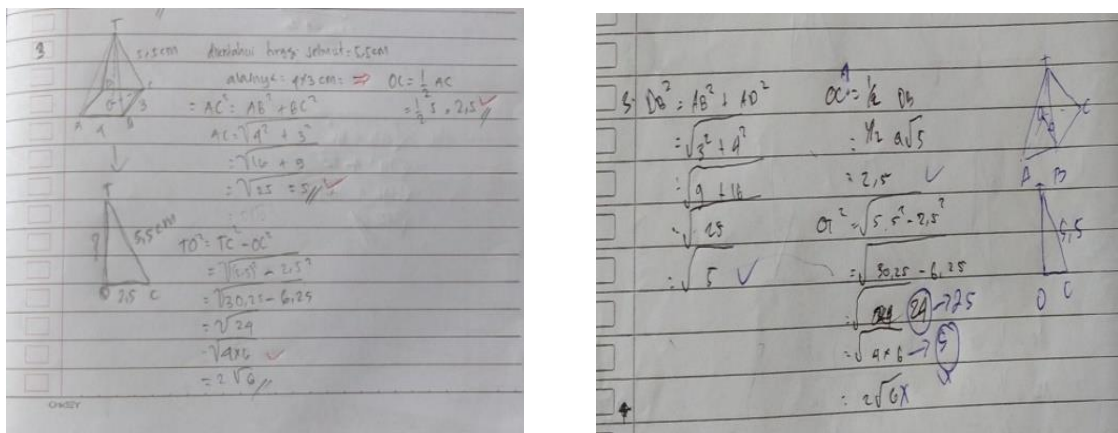 3
T
5,5 cm
diketahui tinggi sebuat = 5,5cm
alasnya = 4x3 cm = ⇒ OC = 1/2 AC
= AC² = AB² + BC²
= 1/2 5 = 2,5
AC = √4² + 3²
= √16 + 9
= √25 = 5
A 4 B
3
T
?
5,5 cm
O 2,5 C
TO² = TC² - OC²
= √5,5² - 2,5²
= √30,25 - 6,25
= √24
= √4x6
= 2√6
DB² = AB² + AD²
= √3² + 4²
= √9 + 16
= √25
= √5
OC = 1/2 DB
= 2,5
OT² = √5.5² - 2,5²
= √30,25 - 6,25
= √24 → 25
= √4 x 6 → 5
= 2√6 x
T
C
A B
5,5
O C
4